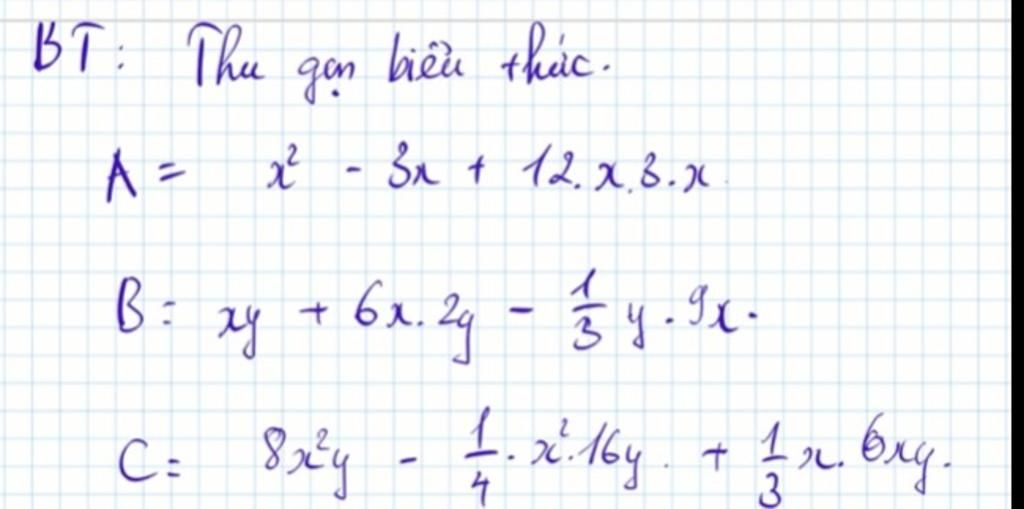 BT: Thu gọn biểu thức.
A = x² - 3x + 12.x.3.x
B = xy + 6x.2y - 1/3 y.9x.
C = 8x²y - 1/4.x².16y. + 1/3 x.6xy.